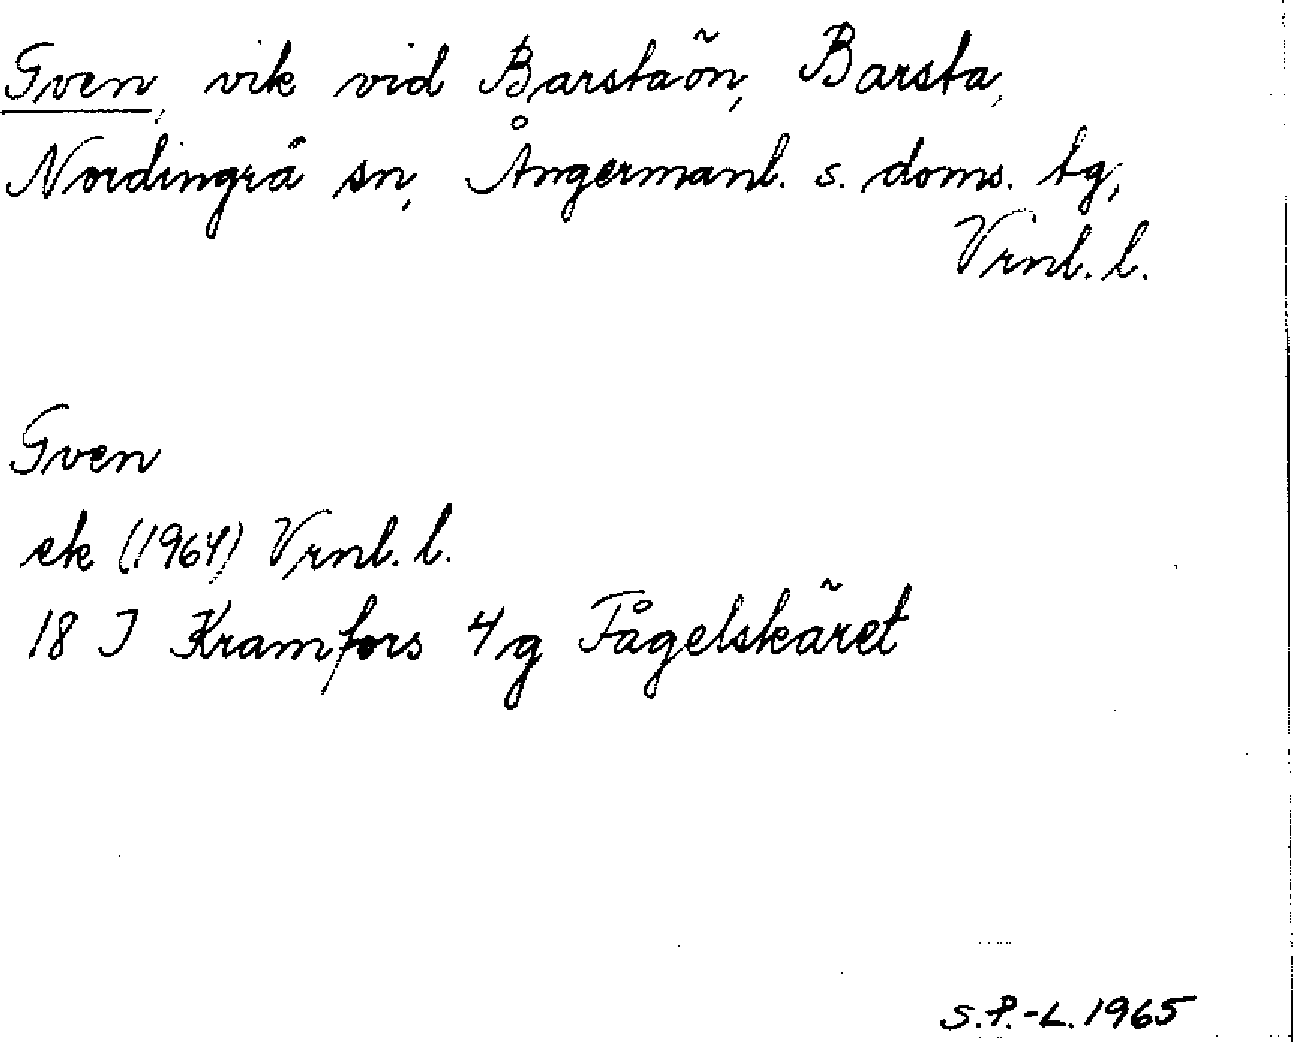 Gven, vik vid Barstaön, Barsta,
Nordingrå sn, Ångermanl. s. doms. tg,
Vrnl. l.
Gven
ek (1964) Vrnl. l.
18 I Kramfors 4 g Fågelskäret
S.P.-L. 1965